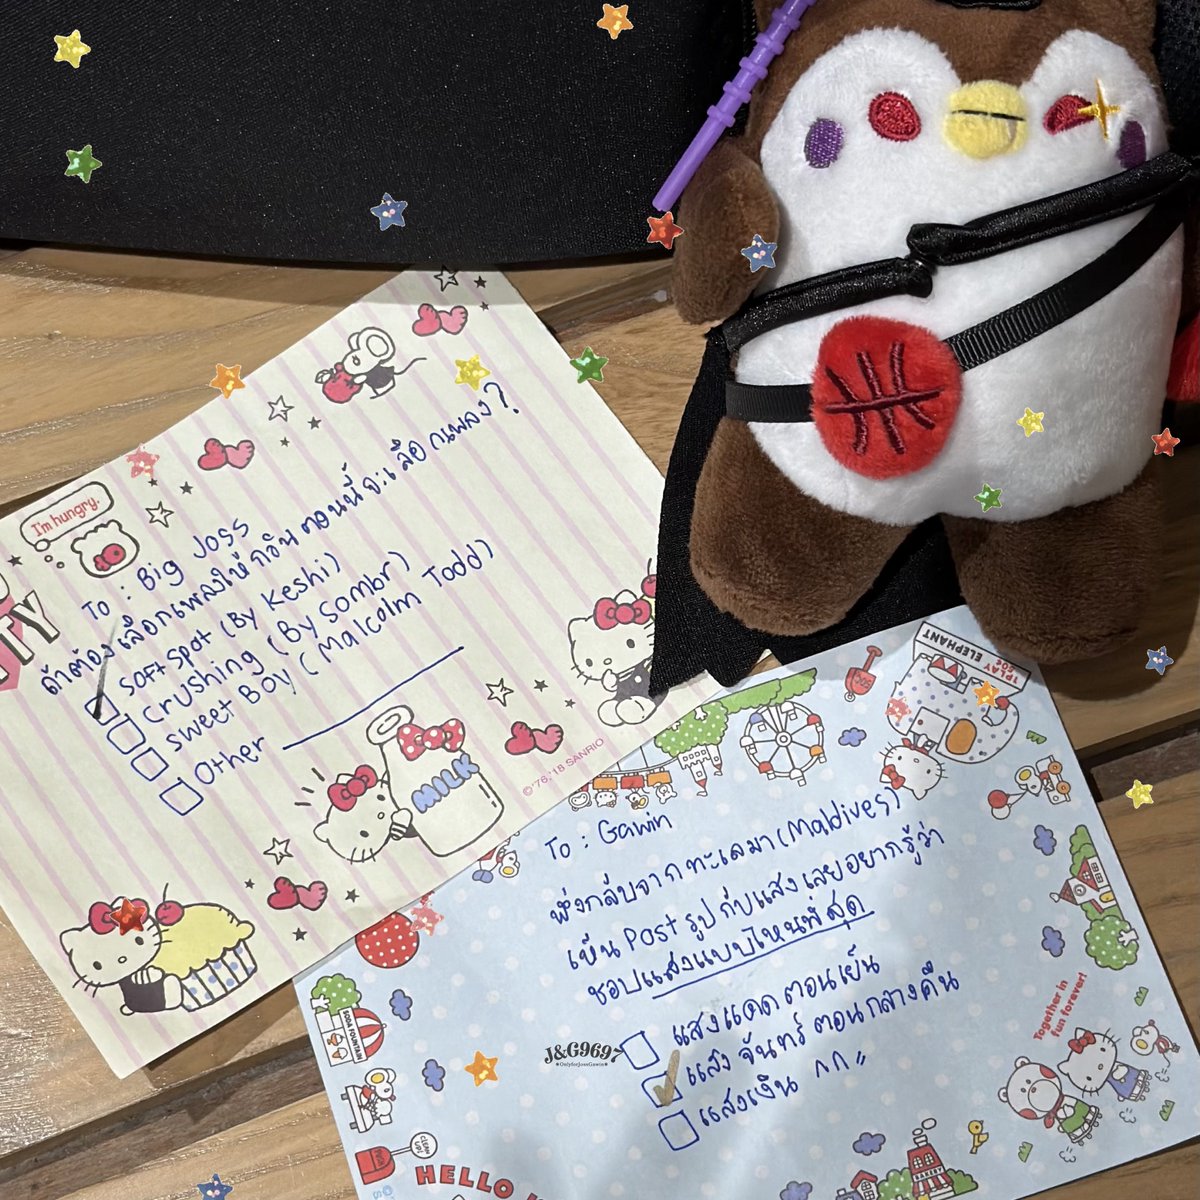 I'm hungry.
TY
To : Big Joss
ถ้าต้องเลือกเพลงให้กวินตอนนี้จะเลือกเพลง?
Soft Spot (By Keshi)
Crushing (By Sombr)
Sweet Boy (Malcolm Todd)
Other
MILK
©'76,'18 SANRIO
PLAY ELEPHANT
50¢
To : Gawin
พึ่งกลับจากทะเลมา (Maldives)
เห็น Post รูป กับแสง เลยอยากรู้ว่า
ชอบแสงแบบไหนที่สุด
แสงแดด ตอนเย็น
แสง จันทร์ ตอนกลางคืน
แสงเงิน ^^"
J&G9697
*OnlyforJossGawin*
SODA FOUNTAIN
Together in
fun forever!
BAKERY
HELLO K